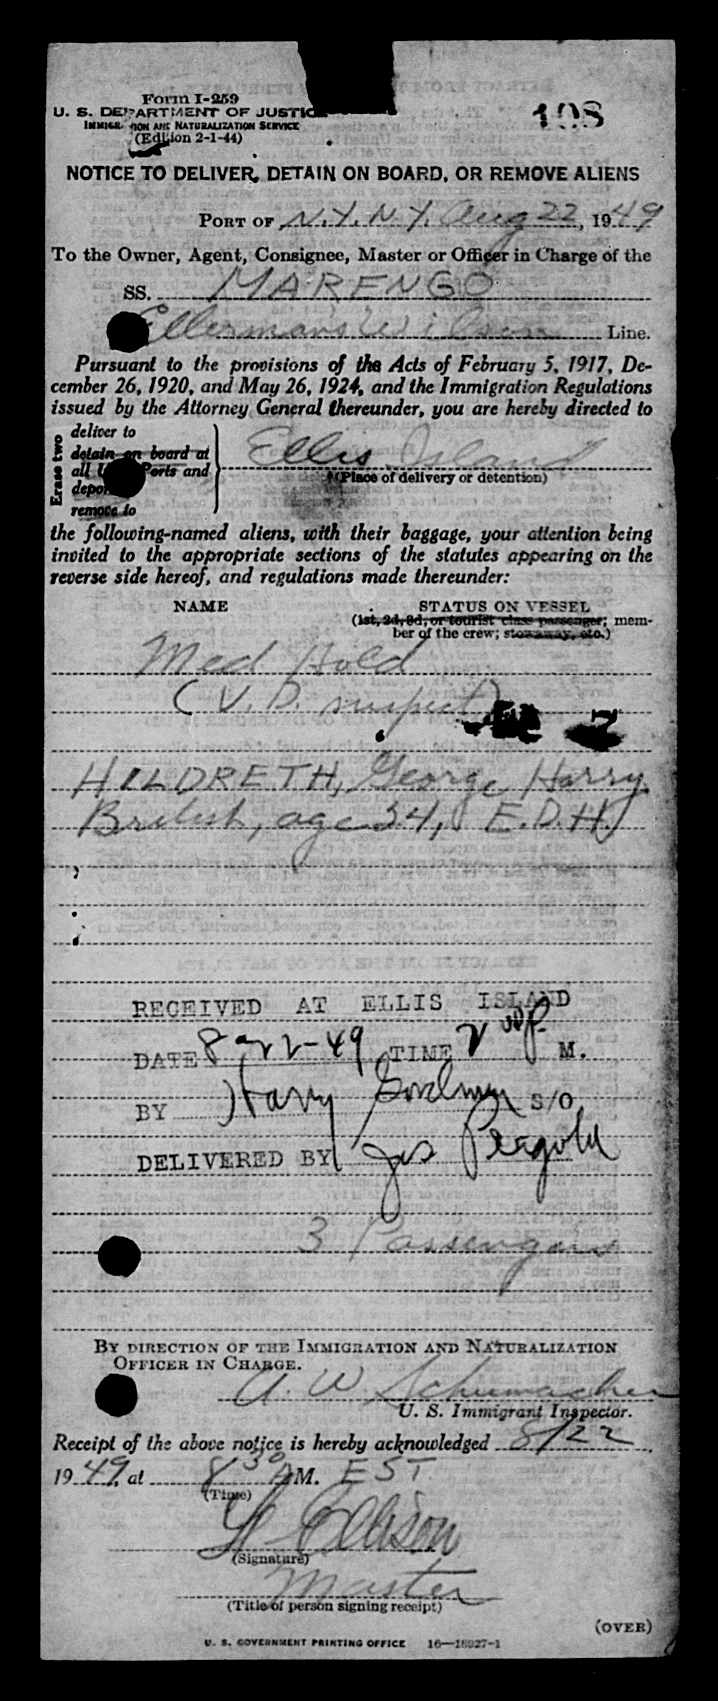 Form I-259
108
U. S. DEPARTMENT OF JUSTICE
IMMIGRATION AND NATURALIZATION SERVICE
(Edition 2-1-44)
NOTICE TO DELIVER, DETAIN ON BOARD, OR REMOVE ALIENS
PORT OF N.Y. N.Y. Aug 22, 1949
To the Owner, Agent, Consignee, Master or Officer in Charge of the
SS. MARENGO
Ellerman's Wilson Line.
Pursuant to the provisions of the Acts of February 5, 1917, De-
cember 26, 1920, and May 26, 1924, and the Immigration Regulations
issued by the Attorney General thereunder, you are hereby directed to
Erase two
deliver to
detain on board at
all U. Ports and
depor
remove to
Ellis Island
(Place of delivery or detention)
the following-named aliens, with their baggage, your attention being
invited to the appropriate sections of the statutes appearing on the
reverse side hereof, and regulations made thereunder:
NAME STATUS ON VESSEL
(1st, 2d, 3d, or tourist class passenger; mem-
ber of the crew; stowaway, etc.)
Med Hold
(V. D. suspect)
HILDRETH, George Harry
British, age 34, E.D.H.
RECEIVED AT ELLIS ISLAND
DATE 8-22-49 TIME 2 00 P. M.
BY Harry S/O
DELIVERED BY Jas
3 Passengers
BY DIRECTION OF THE IMMIGRATION AND NATURALIZATION
OFFICER IN CHARGE.
A. W. Schumacher
U. S. Immigrant Inspector.
Receipt of the above notice is hereby acknowledged 8/22,
1949, at 8 30 AM. EST
(Time)
Ellison
(Signature)
Master
(Title of person signing receipt)
(OVER)
U. S. GOVERNMENT PRINTING OFFICE 16—18927-1